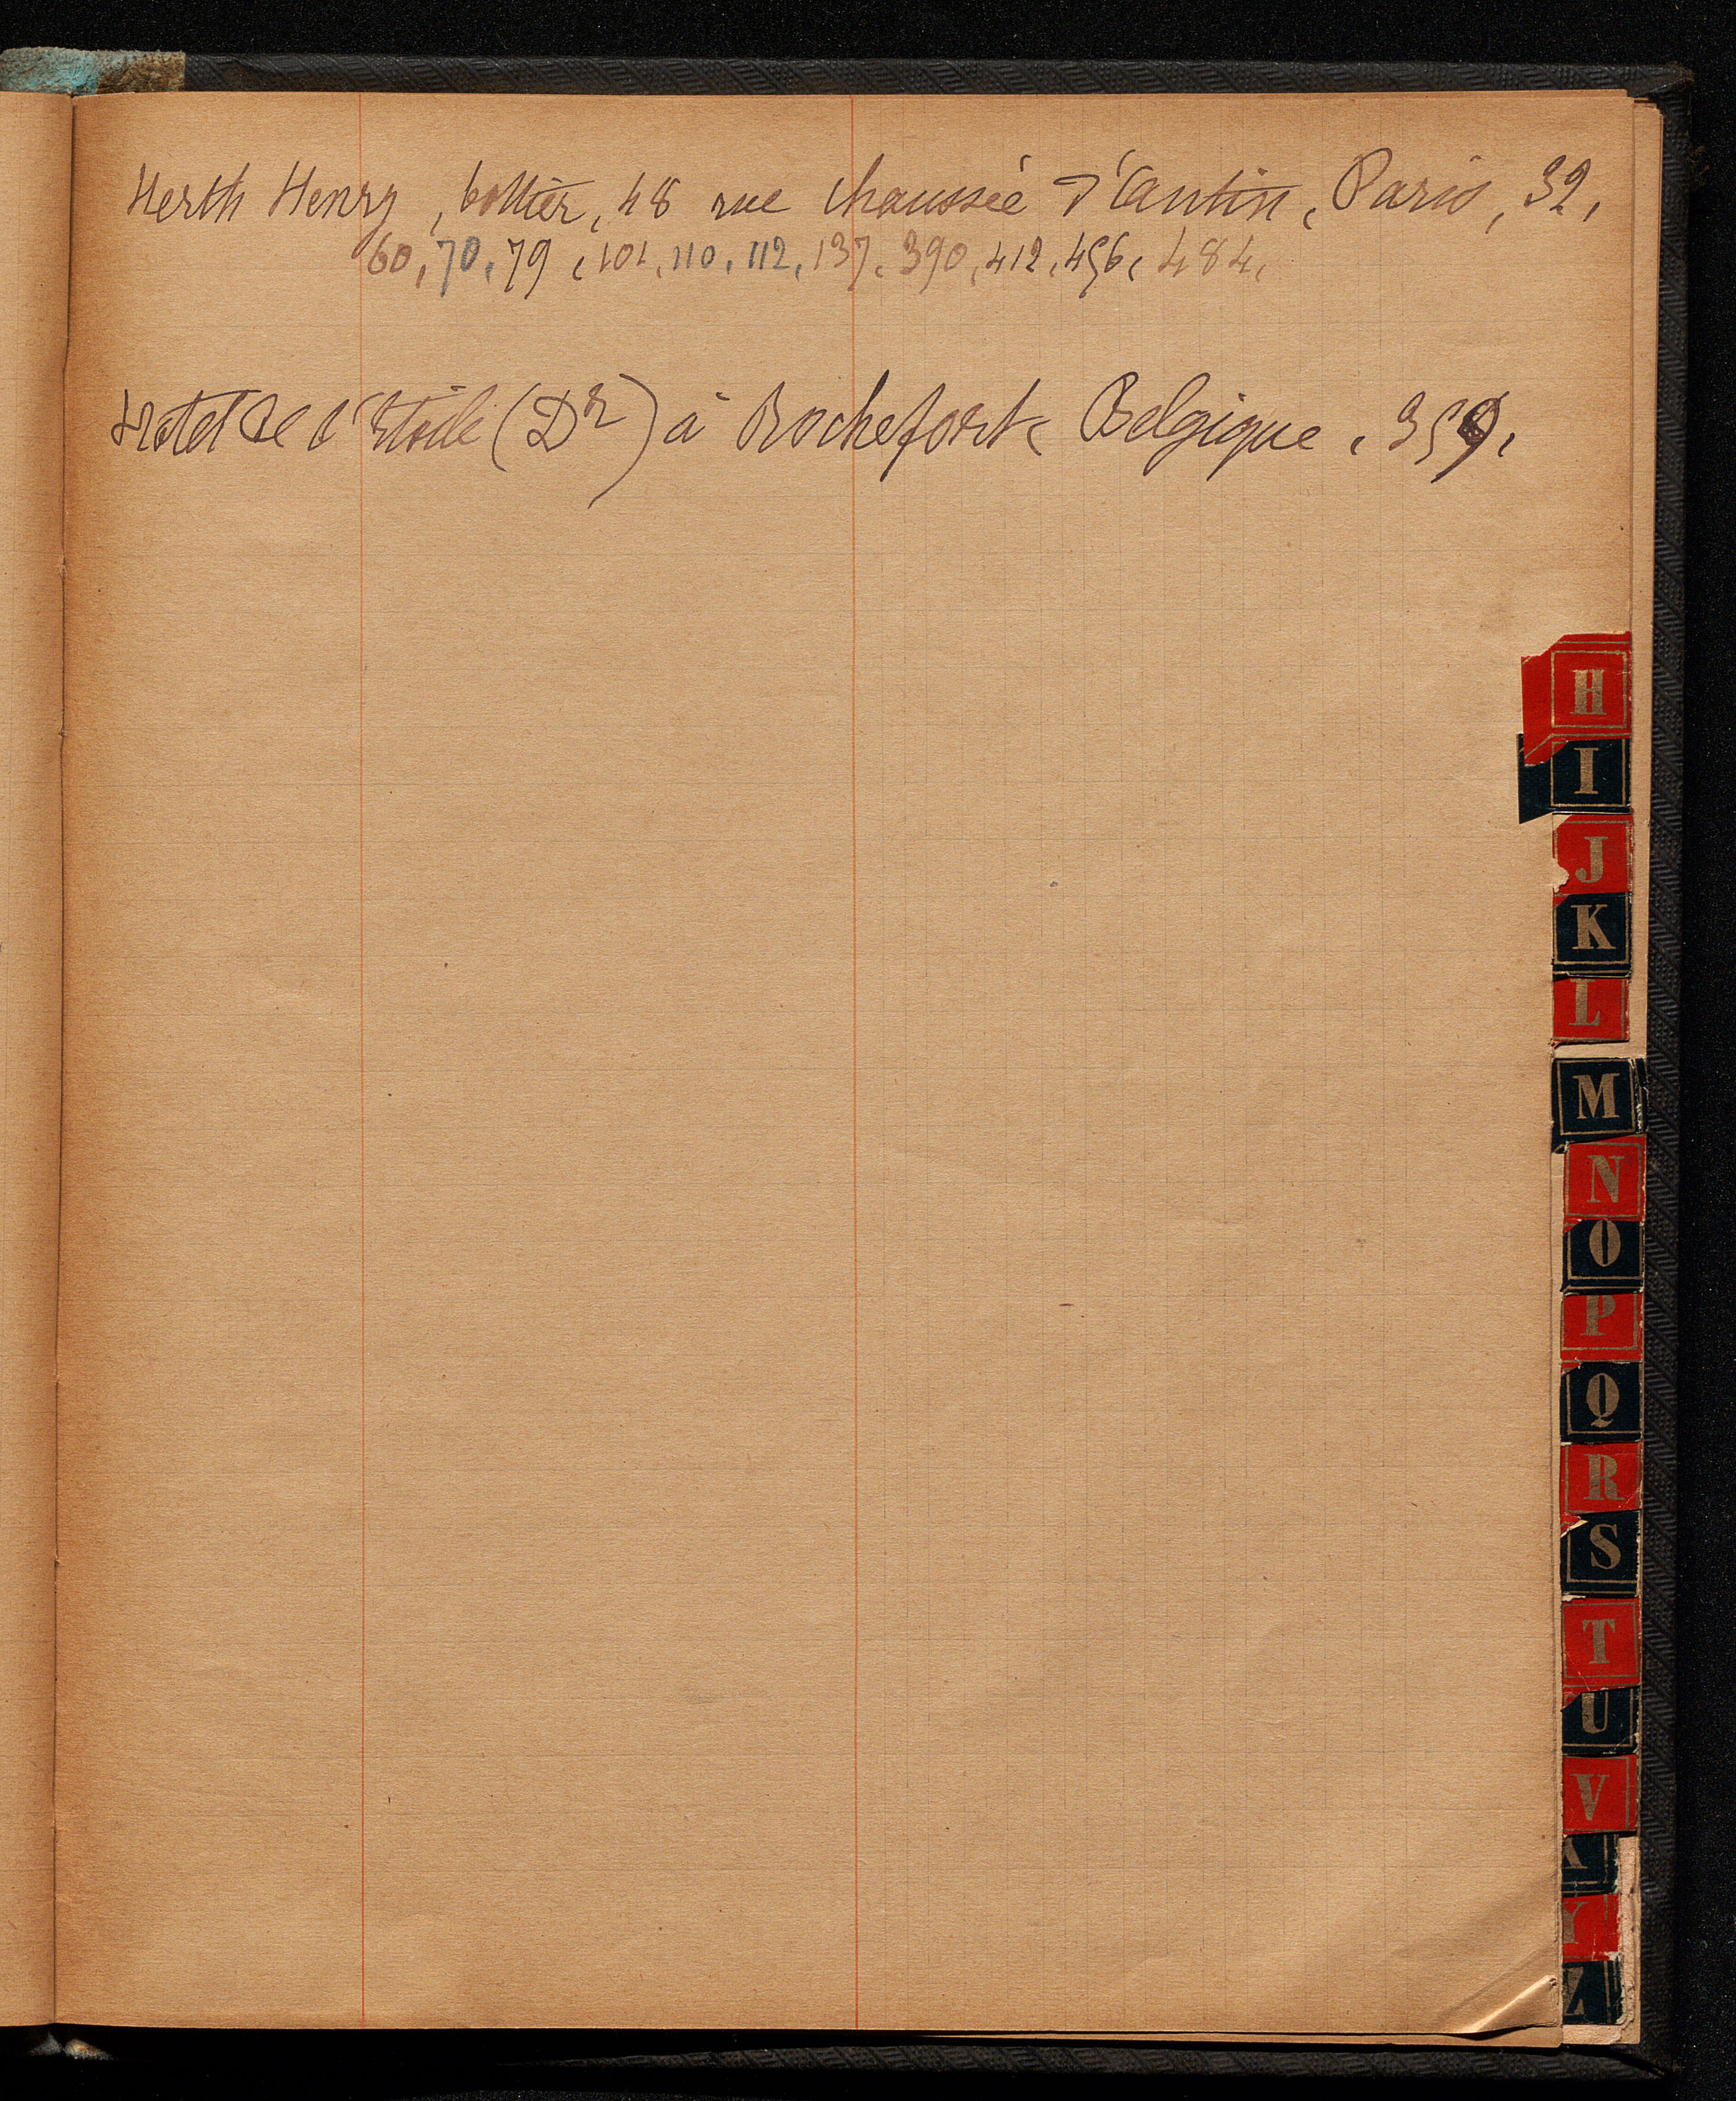 Herth Henry, bottier, 48 rue Chaussée d'Antin, Paris, 32,
60, 70, 79, 101, 110, 112, 137, 390, 412, 456, 484,
Hotel de l'Etoile (Dr) à Rochefort, Belgique, 359,
H
I
J
K
L
M
N
O
P
Q
R
S
T
U
V
X
Y
Z